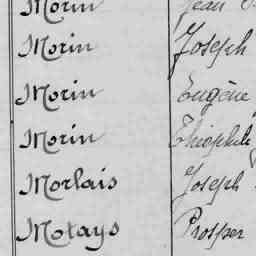 Morin Jean
Morin Joseph
Morin Eugène
Morin Théophile
Morlais Joseph
Motays Prosper